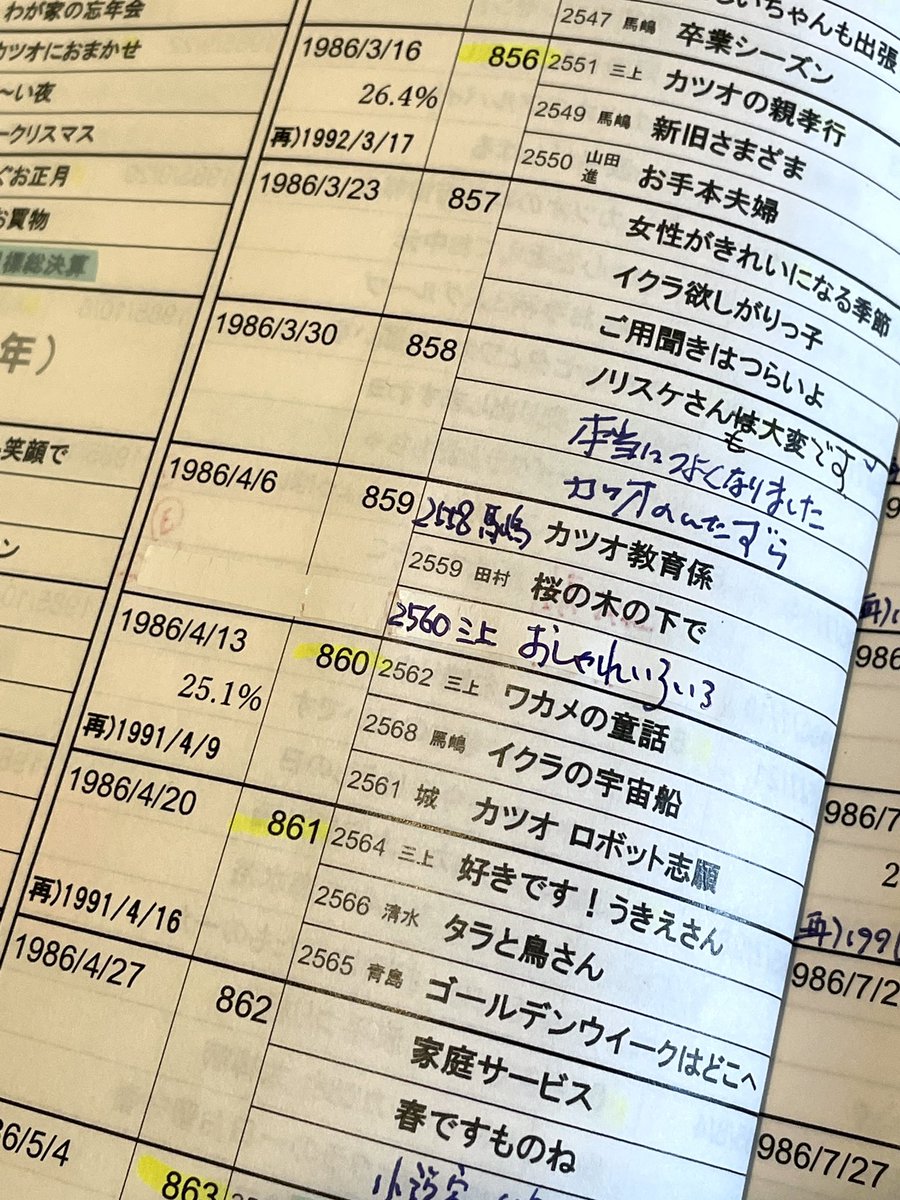 わが家の忘年会
カツオにおまかせ
〜い夜
ークリスマス
ぐお正月
お買物
標総決算
年）
笑顔で
ン
いちゃんも出張
2547 馬嶋 卒業シーズン
1986/3/16 856 2551 三上 カツオの親孝行
26.4% 2549 馬嶋 新旧さまざま
再)1992/3/17 2550 山田進 お手本夫婦
1986/3/23 857 女性がきれいになる季節
イクラ欲しがりっ子
ご用聞きはつらいよ
1986/3/30 858 ノリスケさんは大変です
も
本当につよくなりました
カツオのいたずら
1986/4/6 859 2558 馬嶋 カツオ教育係
③
2559 田村 桜の木の下で
2560 三上 おしゃれいろいろ
1986/4/13 860 2562 三上 ワカメの童話
25.1% 2568 馬嶋 イクラの宇宙船
再)1991/4/9 2561 城 カツオ ロボット志願
1986/4/20 861 2564 三上 好きです！うきえさん
2566 清水 タラと鳥さん
再)1991/4/16 2565 青島 ゴールデンウイークはどこへ
1986/4/27 862 家庭サービス
春ですものね
6/5/4 863
986/7
再)1991
986/7/2
986/7/27